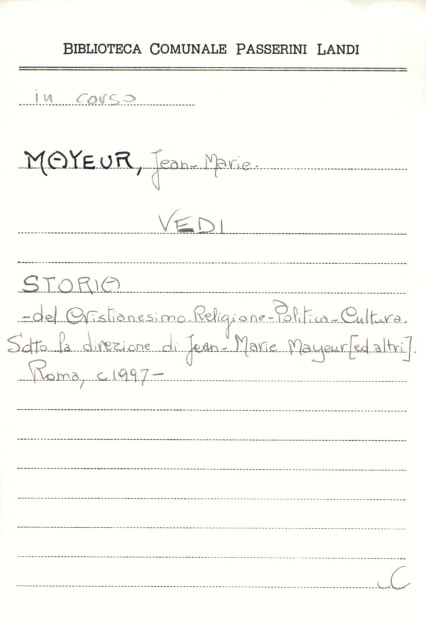 BIBLIOTECA COMUNALE PASSERINI LANDI
in corso
MAYEUR, Jean-Marie.
VEDI
STORIA
-del Cristianesimo. Religione-Politica-Cultura.
Sotto la direzione di Jean-Marie Mayeur [ed altri].
Roma, c1997-
C